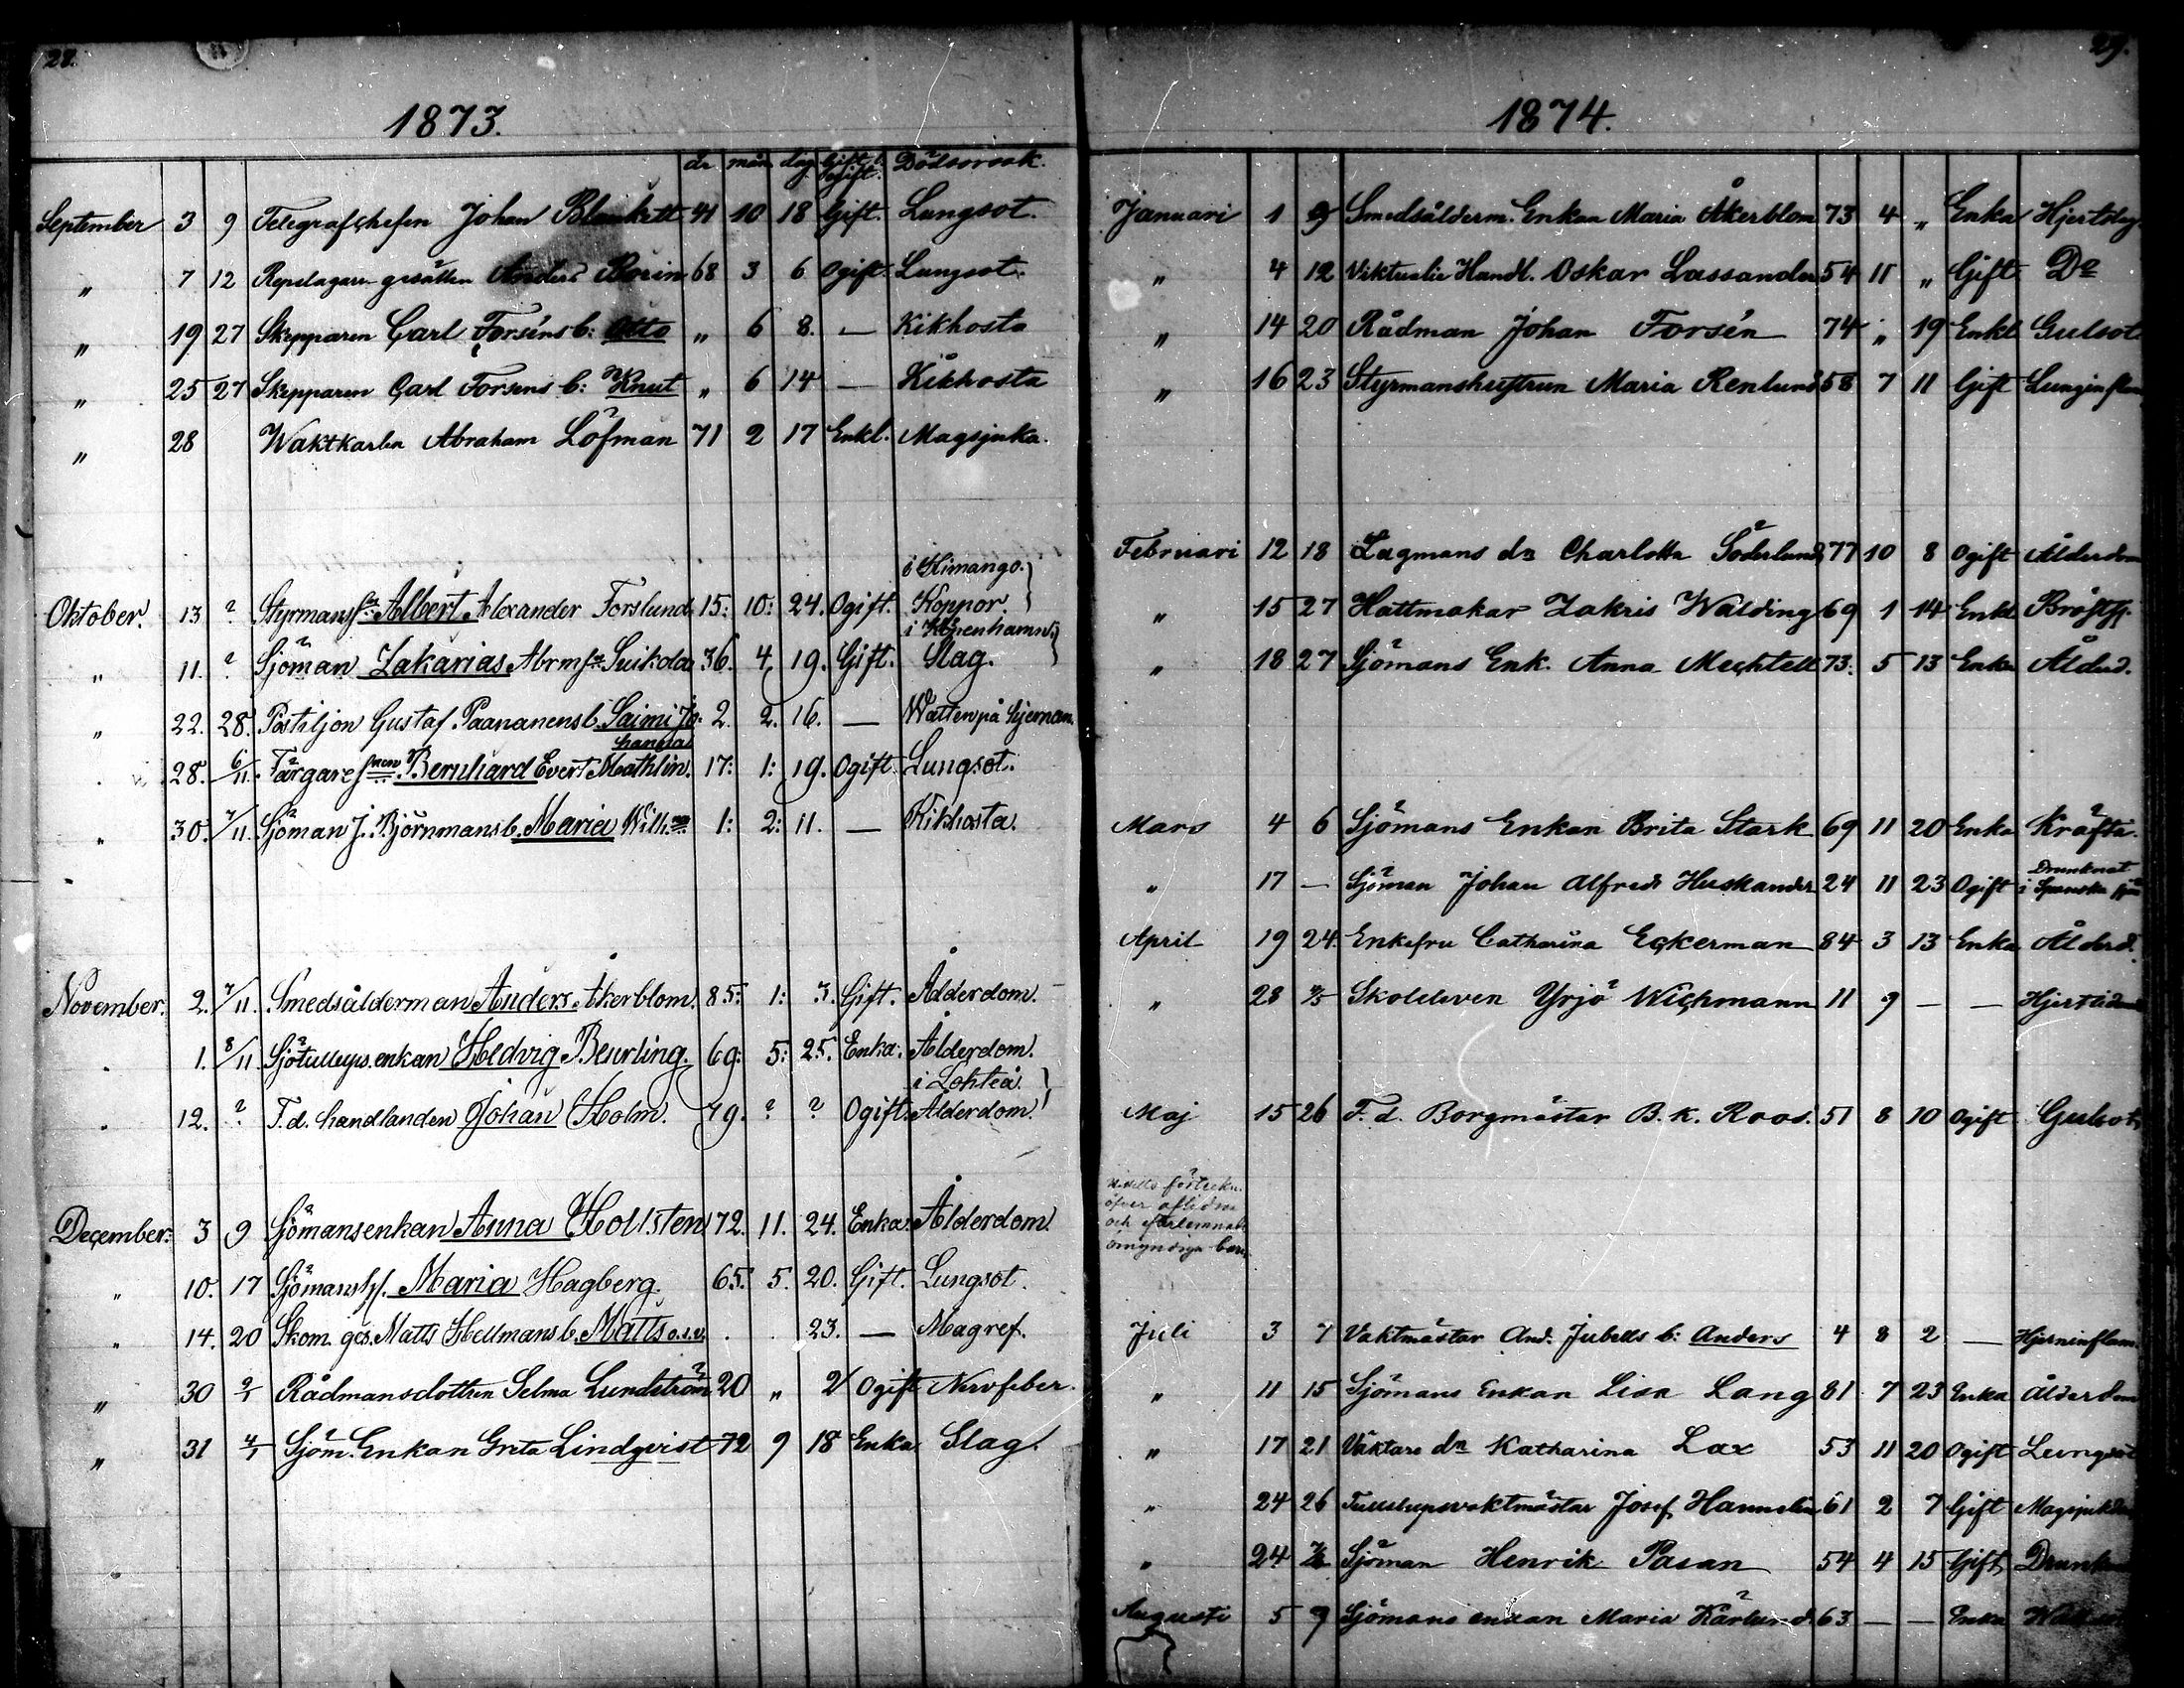 28.
1873.
år mån dag Gift l. ogift. Dödsorsak.
September 3 9 Telegrafchefen Johan Blankett 41 10 18 Gift. Lungsot.
" 7 12 Repslagare gesällen Anders Borin 68 3 6 Ogift. Lungsot.
" 19 27 Skepparen Carl Forséns b: Otto " 6 8. — Kikhosta
" 25 27 Skepparen Carl Forsens b: Knut " 6 14 — Kikhosta
" 28 Waktkarlen Abraham Löfman 71 2 17 Enkl. Magsjuka.
i Himango.
Oktober. 13 ? Styrmans Albert Alexander Forslund 15: 10: 24. Ogift. Koppor.
i Köpenhamn.
" 11. ? Sjöman Zakarias Abrms Suikola 36. 4. 19. Gift. Slag.
" 22. 28. Postiljon Gustaf Paananens b. Saimi Jo- 2. 2. 16. — Watten på hjernan.
hanna
" 28. 6/11. Färgares Bernhard Evert Mathlin. 17: 1: 19. Ogift. Lungsot.
" 30. 7/11. Sjöman J. Björnmans b. Maria Wilh:na 1: 2: 11. — Kikhosta.
November. 2. 7/11. Smedsålderman Anders Åkerblom. 85: 1: 3. Gift. Ålderdom.
" 1. 8/11 Sjötullups. enkan Hedvig Beurling. 69: 5: 25. Enka. Ålderdom.
i Lohteå.
" 12. ? F.d. handlanden Johan Holm. 79. ? ? Ogift. Ålderdom.
December: 3 9 Sjömansenkan Anna Hollsten 72. 11. 24. Enka. Ålderdom.
" 10. 17 Sjömansh. Maria Hagberg. 65. 5. 20. Gift. Lungsot.
" 14. 20 Skom. ges. Matts Hellmans b. Matts o.s.v. . . 23. — Magref.
" 30 2/1 Rådmansdottren Selma Lundström 20 " 2 Ogift Nervfeber.
" 31 4/1 Sjöm. Enkan Greta Lindqvist 72 9 18 Enka Slag.
29.
1874.
Januari 1 9 Smedsålderm. Enkan Maria Åkerblom 73 4 " Enka Hjertslag
" 4 12 Viktualie Handl. Oskar Lassander 54 11 " Gift Do
" 14 20 Rådman Johan Forsén 74 " 19 Enkl Gulsot
" 16 23 Styrmanshustrun Maria Renlund 58 7 11 Gift Lunginflam
Februari 12 18 Lagmans dn Charlotta Söderlund 77 10 8 Ogift Ålderdom
" 15 27 Hattmakar Zakris Walding 69 1 14 Enkl
" 18 27 Sjömans Enk. Anna Mechtell 73. 5 13 Enka Ålderd.
Mars 4 6 Sjömans Enkan Brita Stark 69 11 20 Enka Kräfta.
" 17 — Sjöman Johan Alfred Huskander 24 11 23 Ogift Drunknat
i Spanska sjön
April 19 24. Enkefru Catharina Eckerman 84 3 13 Enka Ålderd.
" 28 Skoleleven Yrjö Wichmann 11 9 — —
Maj 15 26 F. d. Borgmästar B. K. Roos. 51 8 10 Ogift Gulsot
förteckn.
öfver aflidne
och efterlemnade
omyndiga barn
Juli 3 7 Vaktmästar And. Jubells b: Anders 4 8 2 — Hjerninflam.
" 11 15 Sjömans Enkan Lisa Lang 81 7 23 Enka Ålderdom
" 17 21 Väktare dn Katharina Lax 53 11 20 Ogift Lungsot
" 24 26 Tulluppsvaktmästar Josef Hannelin 61 2 7 Gift
" 24 Sjöman Henrik Pasan 54 4 15 Gift
Augusti 5 9 Sjömans enkan Maria Kårlund. 63 — — Enka